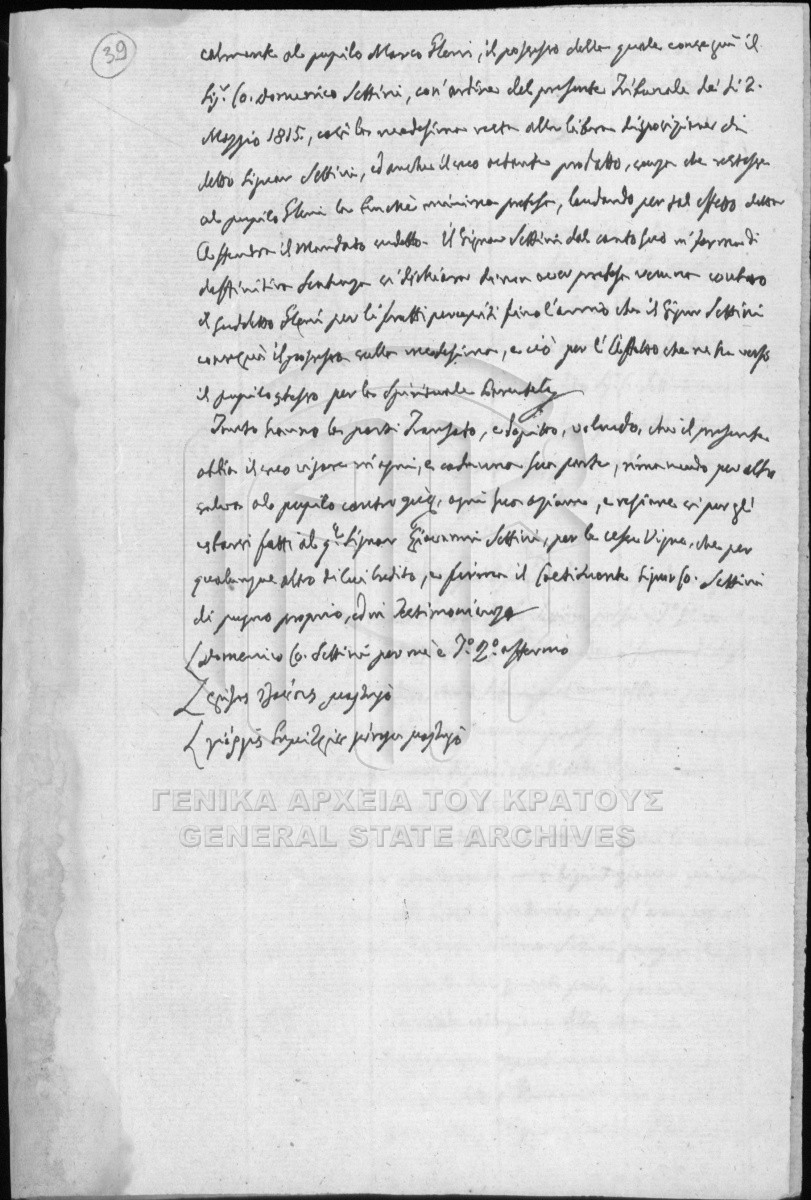 39
calmente al pupilo Marco Eleni, il possesso della quale conseguì il
Sigr. Co. Domenico Settini, con ordine del presente Tribunale dei di 2.
Maggio 1815, così la medesima resta alla libera disposizione di
detto Signor Settini, ed anche il suo prodotto, senza che restasse
al pupilo Eleni la benchè minima pretesa, laudando per tal effetto detta
il Mandato sudetto. Il Signor Settini dal canto suo in forma di
deffinitiva Sentenza si dichiara di non aver pretesa veruna contro
il sudetto Eleni per li frutti percepiti fino l'anno che il Signor Settini
conseguì il possesso sulla medesima, e ciò per l'Affetto che ne ha verso
il pupilo stesso per la Spirituale Parentela
Tanto hanno le parti Transato, e volendo, che il presente
abbia il suo vigore in ogni, e cadauna sua parte, rimanendo per altro
salva al pupilo contro ogni sua azione, e ragione si per gli
fatti al qm. Signor Giovanni Settini, per la Vigna, che per
qualunque altro di lui Credito, e firma il Signor Co. Settini
di pugno proprio, ed in Testimonianza
Domenico Co. Settini per me e affermo
μαρτυρό
μαρτυρό
ΓΕΝΙΚΑ ΑΡΧΕΙΑ ΤΟΥ ΚΡΑΤΟΥΣ
GENERAL STATE ARCHIVES